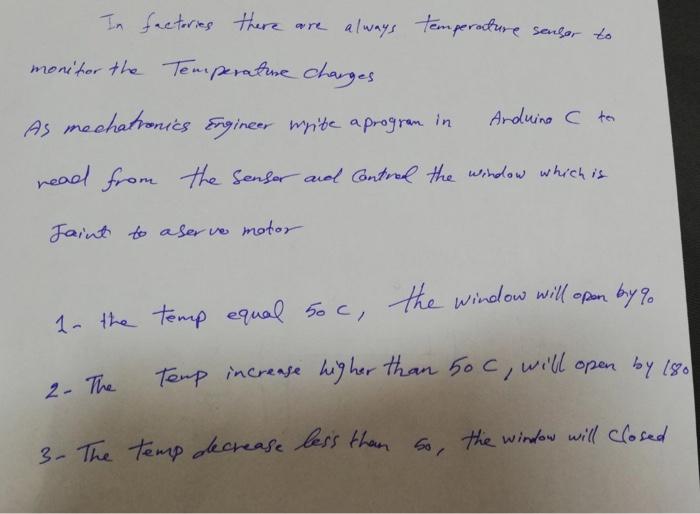 In factories there are always temperature sensor to
monitor the Temperature changes
As mechatronics Engineer write a program in Arduino C to
read from the sensor and Control the window which is
Jaint to a servo motor
1- the temp equal 50 C, the window will open by 90
2- The Temp increase higher than 50 C, will open by 180
3- The temp decrease less than 50, the window will closed